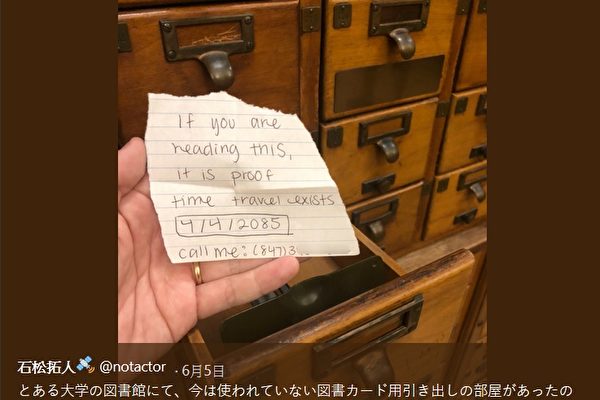 If you are
reading this,
it is proof
time travel exists
4/4/2085
call me: (847)3...
石松拓人🛰 @notactor · 6月5日
とある大学の図書館にて、今は使われていない図書カード用引き出しの部屋があったの